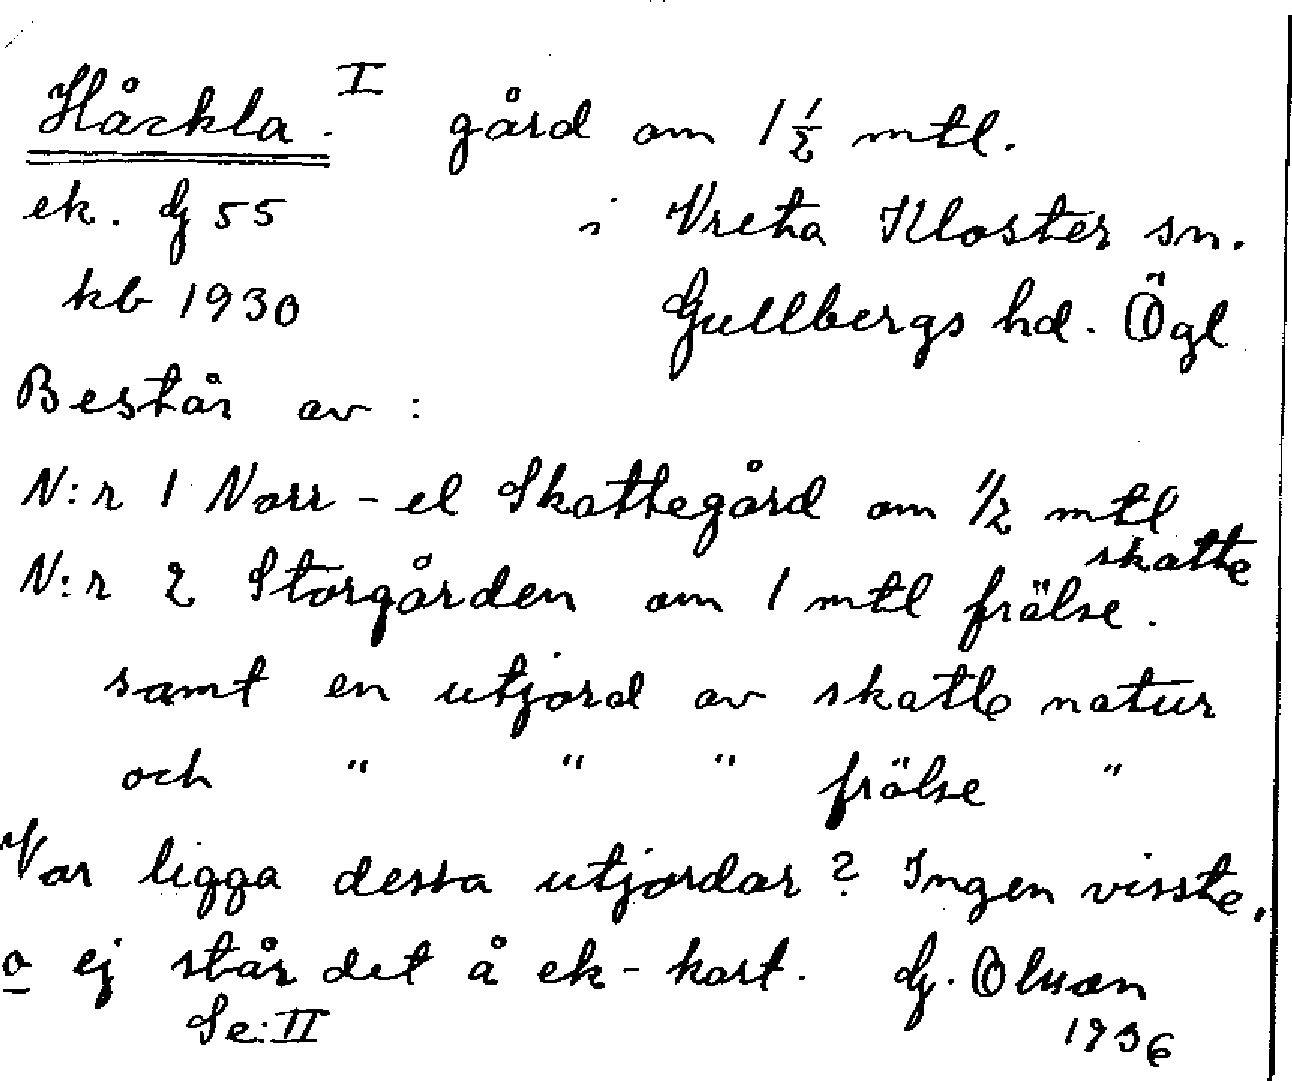 Håckla. I gård om 1 1/2 mtl.
ek. G 55 i Vreta Kloster sn.
kb 1930 Gullbergs hd. Ögl
Består av :
N:r 1 Norr-el Skattegård om 1/2 mtl skatte
N:r 2 Storgården om 1 mtl frälse.
samt en utjord av skatte natur
och " " " frälse "
Var ligga dessa utjordar? Ingen visste,
o ej står det å ek-kart. G. Olsson
Se: II 1936